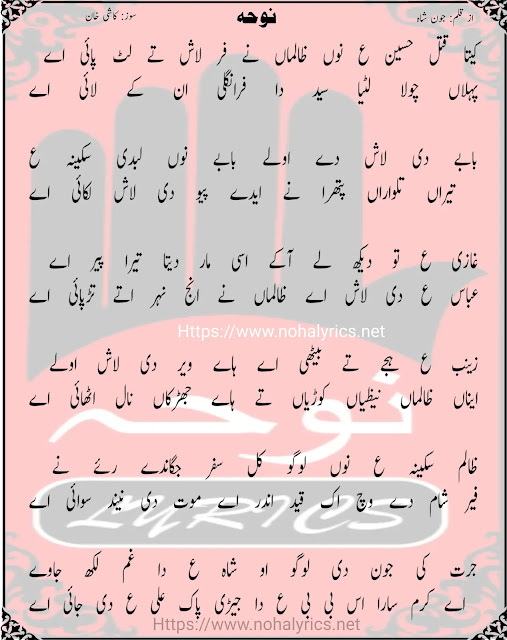 از قلم: جون شاہ
نوحہ
سوز: کاشی خان
کیتا قتل حسین ع نوں ظالماں نے فر لاش تے لٹ پائی اے
پہلاں چولا لٹیا سید دا فرانگلی ان کے لائی اے
بابے دی لاش دے اولے بابے نوں لبدی سکینہ ع
تیراں تلواراں پتھرا نے ایدے پیو دی لاش لکائی اے
غازی ع تو دیکھ لے آکے اسی مار دیتا تیرا پیر اے
عباس ع دی لاش اے ظالماں نے انج نہر اتے تڑپائی اے
Https://www.nohalyrics.net
زینب ع ہجے تے بیٹھی اے ہاے ویر دی لاش اولے
ایناں ظالماں نیظیاں کوڑیاں تے ہاے جھڑکاں نال اٹھائی اے
نوحہ
ظالم سکینہ ع نوں لوگو کل سفر جگاندے رئے نے
فیر شام دے وچ اک قید اندر اے موت دی نیند سوائی اے
LYRICS
جرت کی جون دی لوگو او شاہ ع دا غم لکھ جاوے
اے کرم سارا اس بی بی ع دا جیڑی پاک علی ع دی جائی اے
Https://www.nohalyrics.net